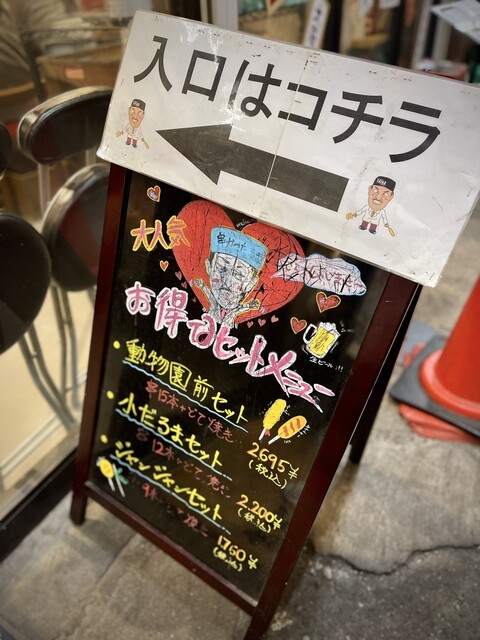 入口はコチラ
大人気
お得なセットメニュー
生ビール!!
・動物園前セット
串15本+どて焼き
2695円
(税込)
・小だるまセット
串12本+どて焼き
2,200円
(税込)
・ジャンジャンセット
串9本+どて焼き
1760円
(税込)